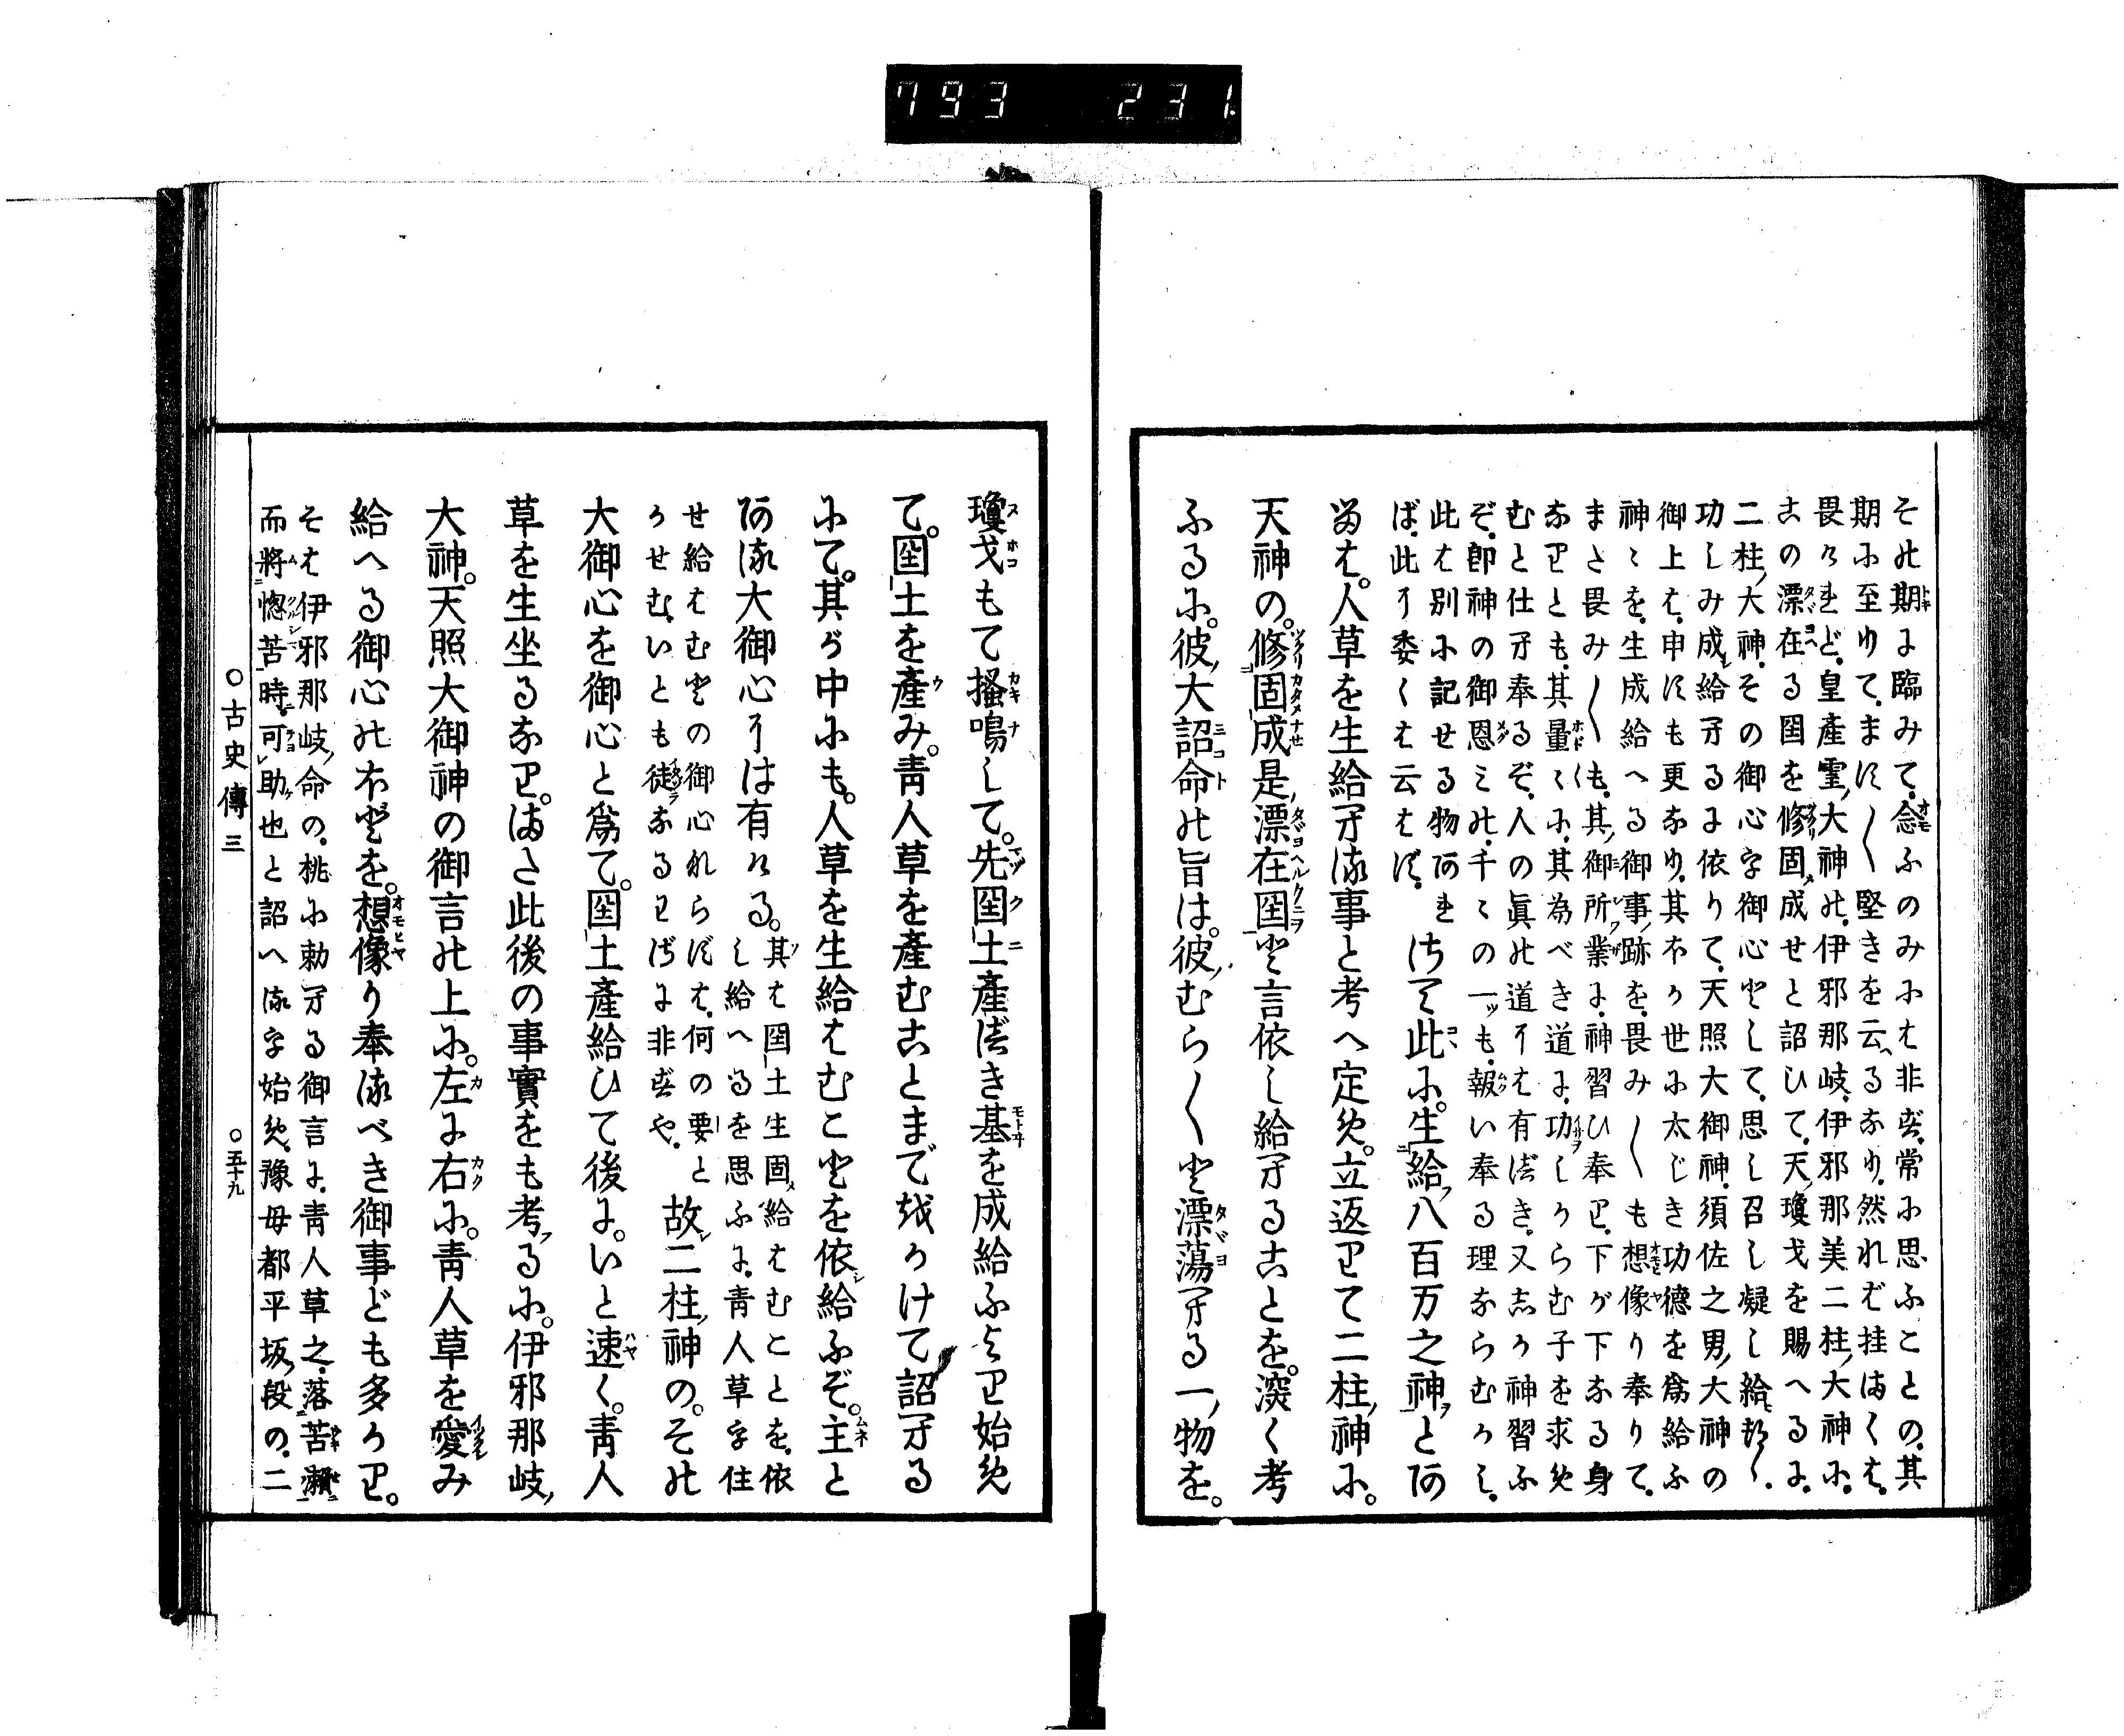 793 231
その期に臨みて、念ふのみには非ず、常に思ふことの、其
期に至りて、ます〳〵堅きを云へるなり、然れば挂まくは、
畏けれど、皇產霊大神の、伊邪那岐、伊邪那美二柱大神に、
この漂在る国を修固成せと詔ひて、天瓊戈を賜へるよ、
二柱大神、その御心を御心として、思し召し凝し給ひ、
功しみ成し給ふるに依りて、天照大御神、須佐之男大神の
御上は、申すも更なり、其ほか世に太じき功德を爲給ふ
神々を、生成給へる御事跡を、畏み〳〵も想像り奉りて、
まさ畏み〳〵も、其御所業に、神習ひ奉り、下が下なる身
なりとも、其量々に、其為べき道に、功しからむ子を求め
むと仕才奉るぞ、人の眞の道には有づき、又志か神習ふ
ぞ、卽神の御恩みの、千々の一ッも、報い奉る理ならむかし、
此は別に記せる物あれ
ば、此には委くは云はず、さて此に、生給八百万之神とあ
るは。人草を生給ふる事と考へ定め。立返りて二柱神に。
天神の。修固成是漂在国と言依し給ふることを。深く考
ふるに。彼大詔命の旨は。彼むら〳〵と漂蕩ふる一物を。
瓊戈もて搔鳴して。先国土產づき基を成給ふより始め
て。国土を產み。靑人草を產むことまで、かけて詔ふる
にて。其が中にも。人草を生給はむことを依給ふぞ。主と
ある大御心には有ける。其は国土生固給はむことを、依
し給へるを思ふに、靑人草を住
せ給はむとの御心ならずは、何の要と
かせむ、いとも徒なるわざに非ずや、故二柱神の。その
大御心を御心と爲て。国土產給ひて後に。いと速く。靑人
草を生坐るなり。まさ此後の事實をも考るに。伊邪那岐
大神。天照大御神の御言の上に。左に右に。靑人草を愛み
給へる御心のほどを。想像り奉るべき御事ども多かり。
そは伊邪那岐命の、桃に勅ふる御言に、靑人草之、落苦瀬
而將惚苦時、可助也と詔へるを始め、豫母都平坂段の、二
○古史傳三 ○五十九